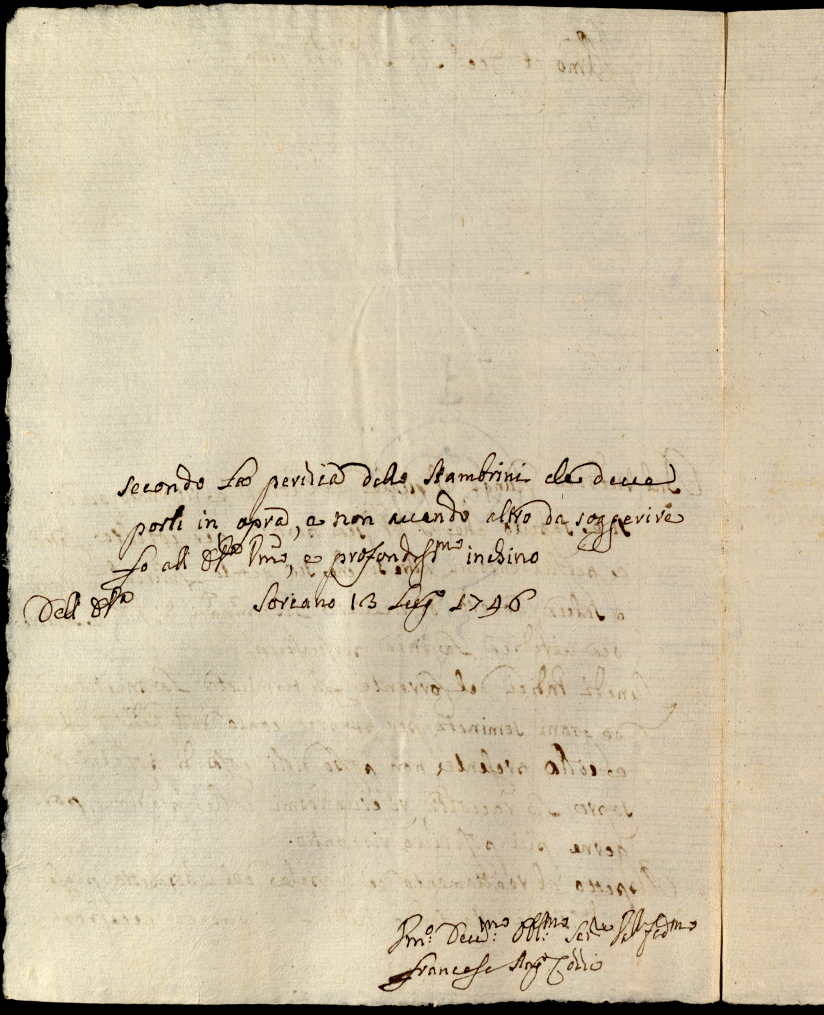 secondo la perizia dello Stambrini che deve
porli in opra, e non avendo altro da soggerire
fo all' Ema. Vma., e profondissmo inchino
Dell' Ema Soriano 13 Lugo 1746
Vmo: Devmo: Obblmo: Serre
Francesco Ango